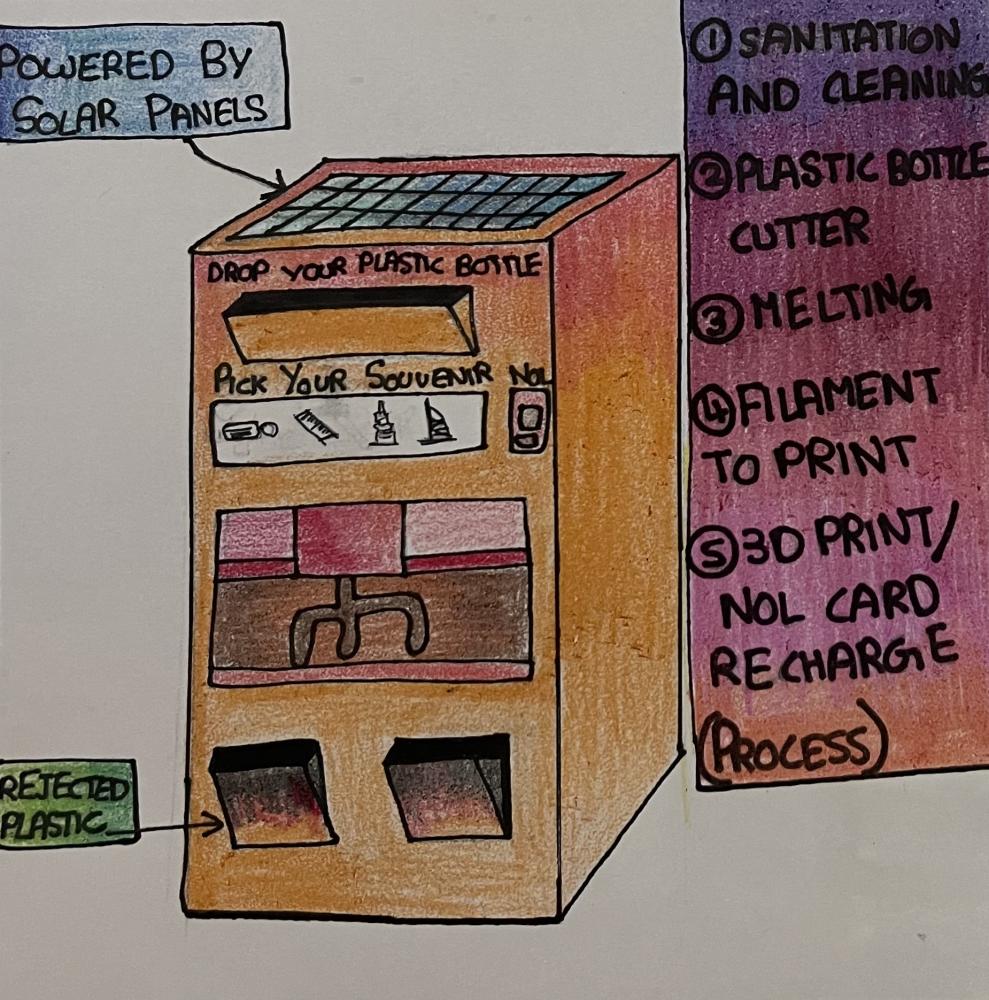 POWERED BY
SOLAR PANELS
DROP YOUR PLASTIC BOTTLE
PICK YOUR SOUVENIR NOL
REJECTED
PLASTIC
① SANITATION
AND CLEANING
② PLASTIC BOTTLE
CUTTER
③ MELTING
④ FILAMENT
TO PRINT
⑤ 3D PRINT/
NOL CARD
RECHARGE
(PROCESS)